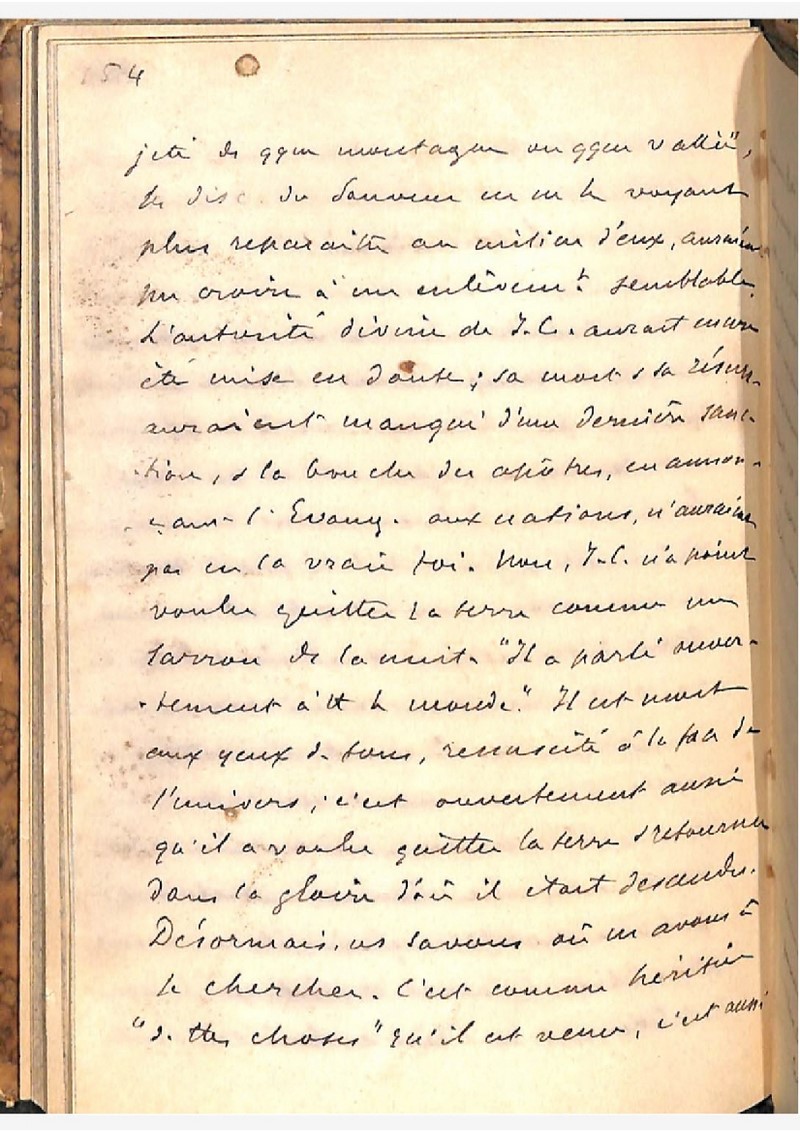 154
jeté ds qque montagne ou qque vallée",
les disc. du Sauveur en ne le voyant
plus reparaître au milieu d'eux, auraient
pu croire à un enlèvemt semblable.
L'autorité divine de J.C. aurait encore
été mise en doute ; sa mort & sa résurr.
auraient manqué d'une dernière sanc-
tion, & la bouche des apôtres, en annon-
çant l'Evang. aux nations, n'auraient
pas eu la vraie foi. Non, J.C. n'a point
voulu quitter la terre comme un
larron de la nuit. "Il a parlé ouver-
tement à tt le monde." Il est mort
aux yeux de tous, ressuscité à la face de
l'univers ; c'est ouvertement aussi
qu'il a voulu quitter la terre & retourner
dans la gloire d'où il était descendu.
Désormais, ns savons où ns avons à
le chercher. C'est comme héritier
"de ttes choses" qu'il est venu, c'est aussi